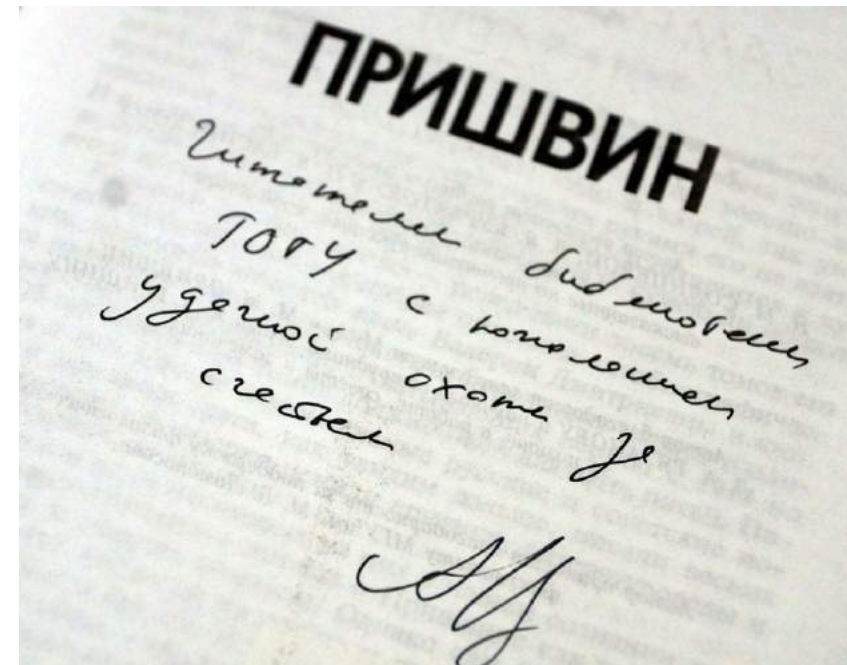 ПРИШВИН
Читателям библиотеки
ТОГУ с пожеланием
удачной охоты за
счастьем